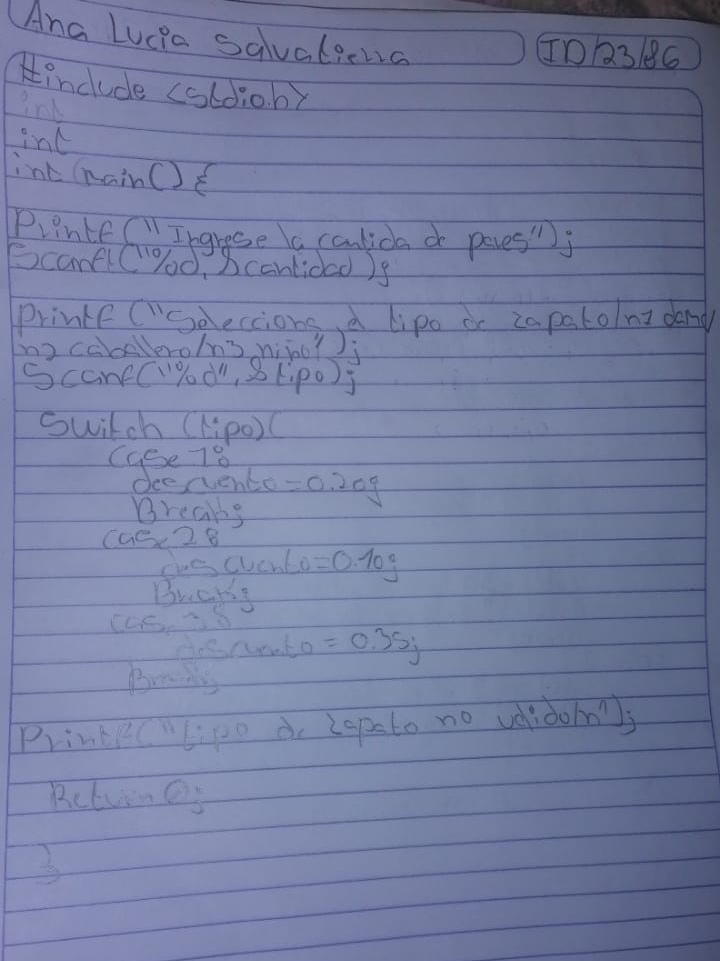 Ana Lucia Salvatierra ID/23/86
#include <stdio.h>
int
int
int main() {
Printf ("Ingrese la cantida de pares");
Scanf("%d, &cantidad );
printf ("Selecciona el tipo de zapato/n1 dama/
n2 caballero/n3 niño");
Scanf("%d", &tipo);
Switch (tipo)(
Case 1:
descuento=0.20;
Break;
case 2:
descuento=0.10;
Break;
case 3:
descuento = 0.35;
Break;
Printf("tipo de zapato no valido/n");
Return 0;
}